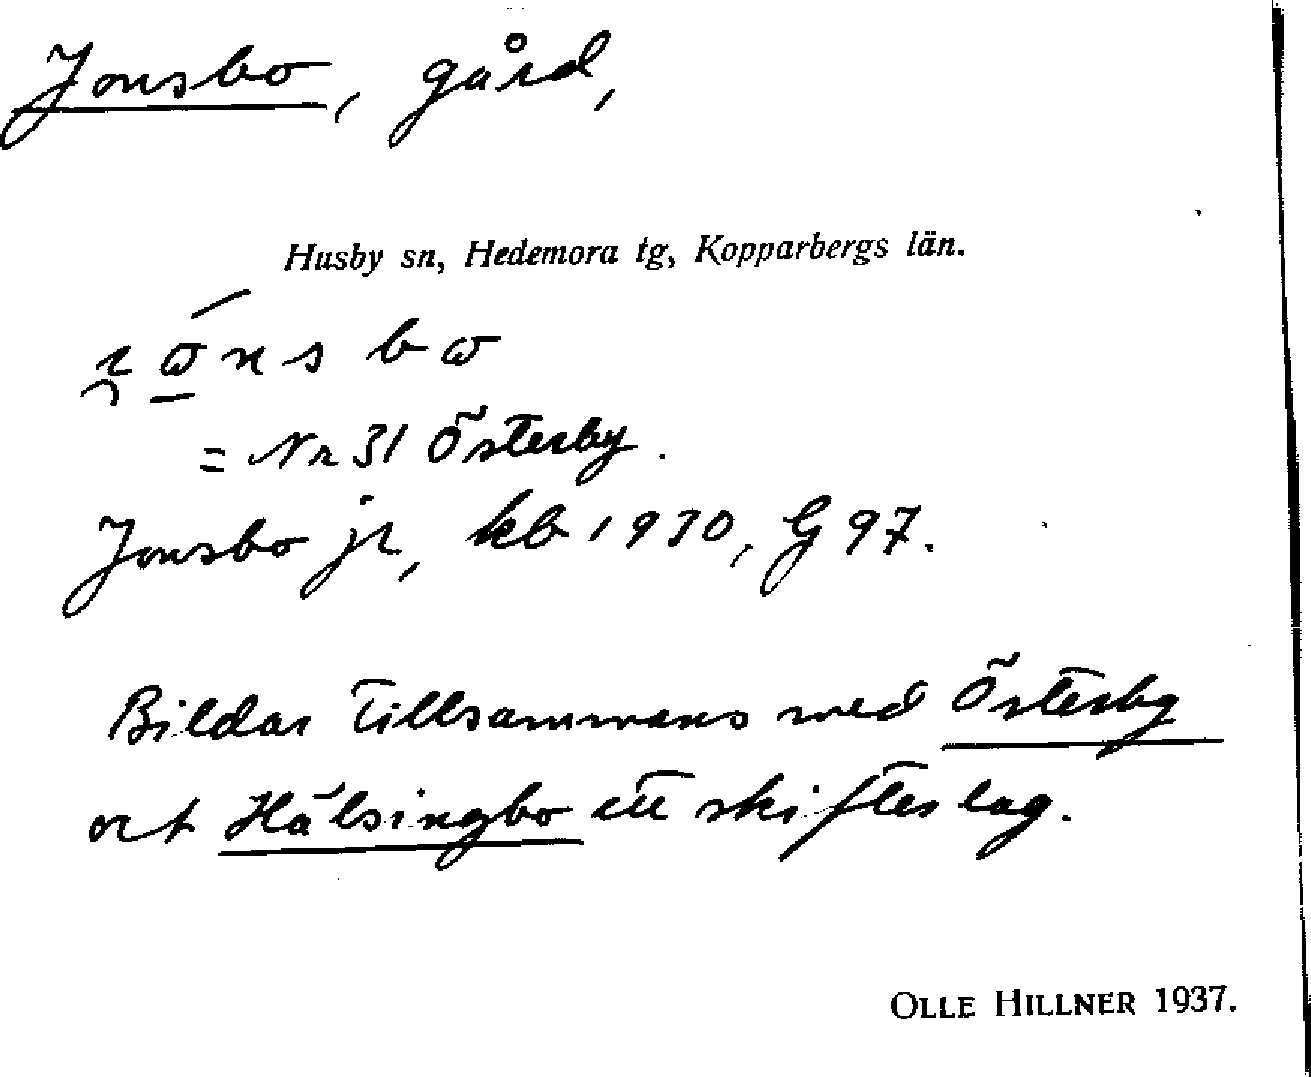 Jonsbo, gård,
Husby sn, Hedemora tg, Kopparbergs län.
= Nr 31 Österby.
Jonsbo jr, kb 1930, G 97.
Bildar tillsammans med Österby
och Hälsingbo ett skifteslag.
OLLE HILLNER 1937.